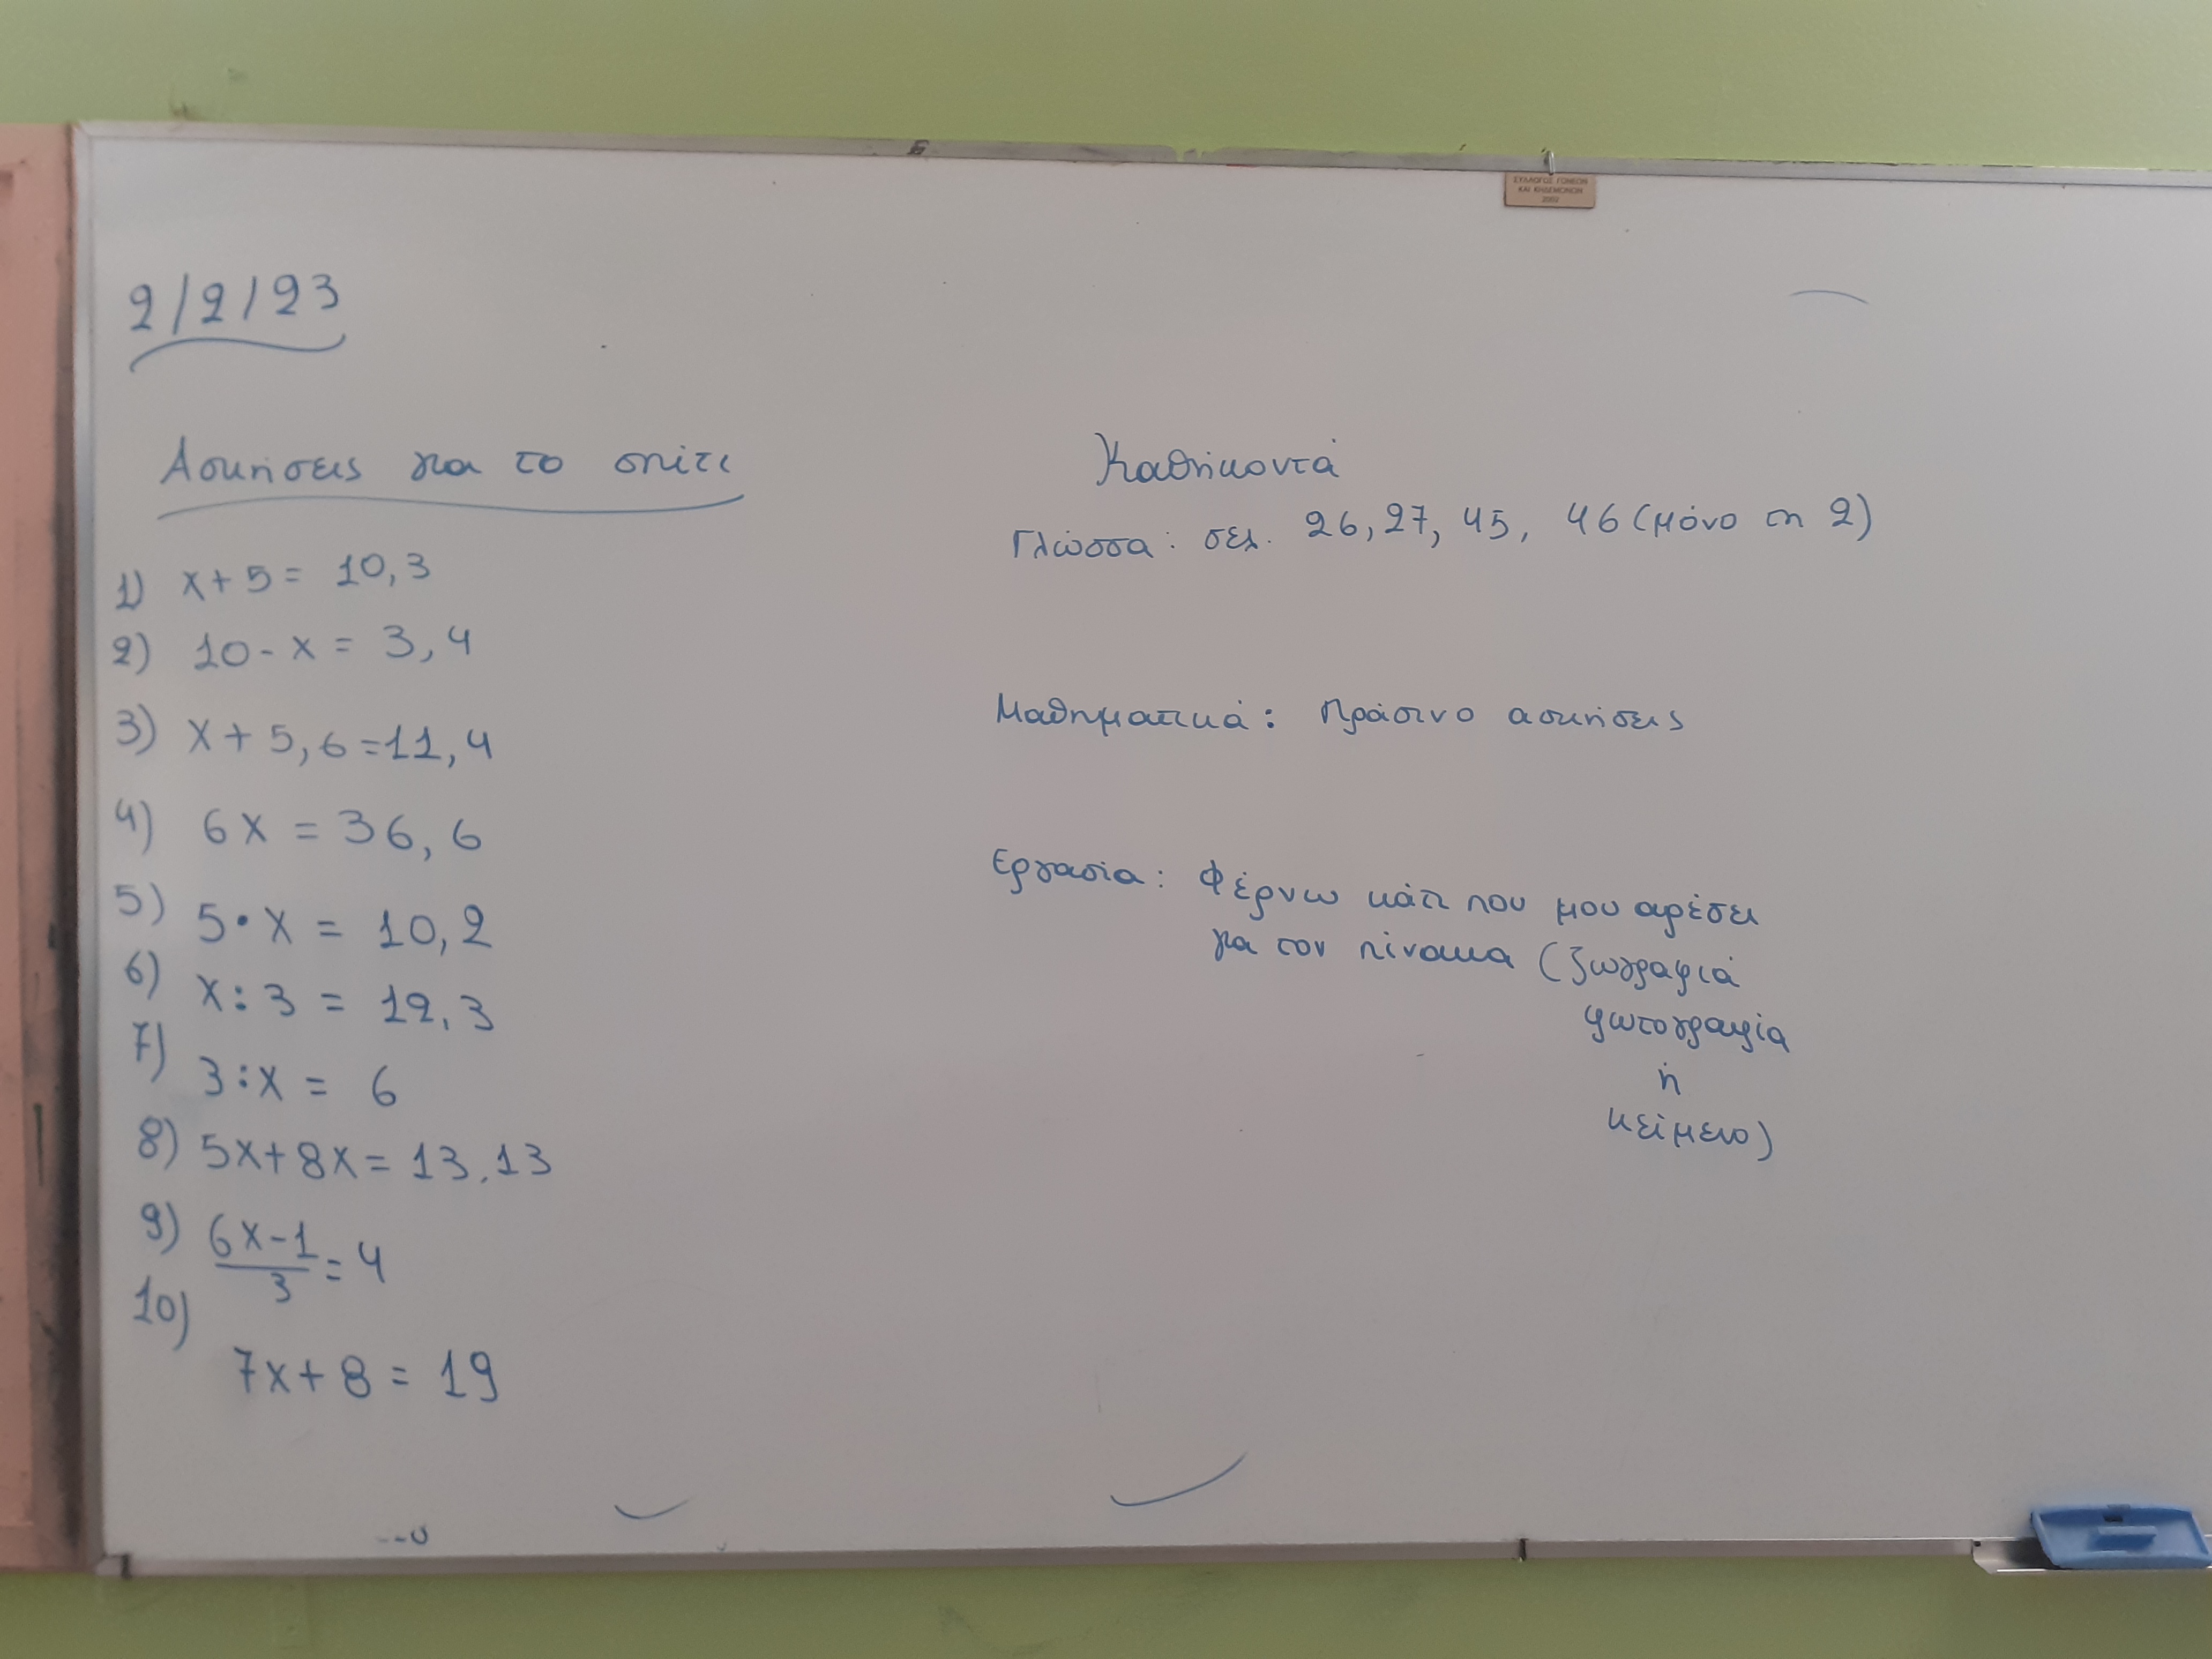 ΣΥΛΛΟΓΟΣ ΓΟΝΕΩΝ
ΚΑΙ ΚΗΔΕΜΟΝΩΝ
2002
2/2/23
Ασκήσεις για το σπίτι
1) x+5= 10,3
2) 10-x = 3,4
3) x+5,6=11,4
4) 6x = 36,6
5) 5·x = 10,2
6) x:3 = 12,3
7) 3:x = 6
8) 5x+8x= 13,13
9) (6x-1)/3=4
10) 7x+8= 19
Καθήκοντά
Γλώσσα: σελ. 26, 27, 45, 46 (μόνο τη 2)
Μαθηματικά: Πράσινο ασκήσεις
Εργασία: Φέρνω κάτι που μου αρέσει
για τον πίνακα (ζωγραφιά
φωτογραφία
ή
κείμενο)